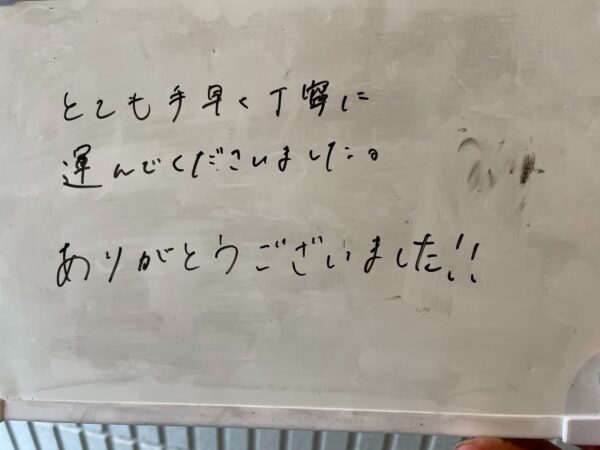 とても手早く丁寧に
運んでくださいました。
ありがとうございました!!